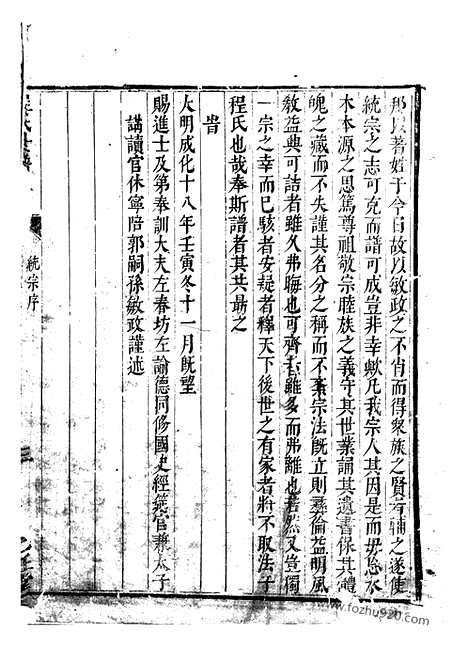 郡以著姓于今日故以敏政之不肖而得衆族之賢者輔之遂使
統宗之志可克而譜可成豈非幸歟凡我宗人其因是而毋怠水
木本源之思篤尊祖敬宗睦族之義守其世業誦其遺書保其體
魄之藏而不失謹其名分之稱而不紊宗法既立則彝倫益明風
教益興可詰者雖久弗晦也可齊者雖多而弗離也若然又豈獨
一宗之幸而已駭者安疑者釋天下後世之有家者將不取法于
程氏也哉奉斯譜者其共最之
旹
大明成化十八年壬寅冬十一月既望
賜進士及第奉訓大夫左春坊左諭德同修國史經筵官兼太子
講讀官休寧陪郭嗣孫敏政謹述
氏
統宗序
三
www.fozhu920.com